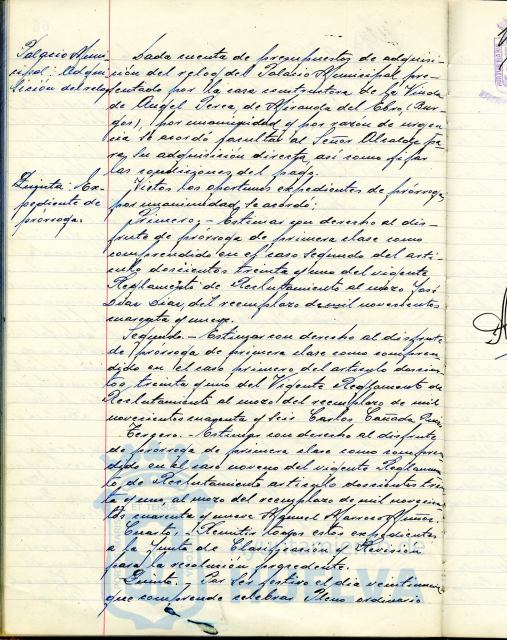 Palacio Muni-
cipal: Adqui-
sición del reloj
Dada cuenta de presupuestos de adquisi-
ción del reloj del Palacio Municipal, pre-
sentado por la casa constructora de la Viuda
de Angel Perea, de Miranda del Ebro, (Bur-
gos), por unanimidad y por razón de urgen-
cia se acordó facultar al Señor Alcalde pa-
ra su adquisición directa, así como fijar
las condiciones del pago.
Quinta: Ex-
pediente de
prórroga.
Vistos los oportunos expedientes de prórroga,
por unanimidad, se acordó:
Primero,- Estimar con derecho al dis-
frute de prórroga de primera clase como
comprendido en el caso segundo del artí-
culo doscientos treinta y uno del vigente
Reglamento de Reclutamiento al mozo José
Díaz Díaz, del reemplazo de mil novecientos
cuarenta y nueve.
Segundo.- Estimar con derecho al disfrute
de prórroga de primera clase como compren-
dido en el caso primero del artículo doscien-
tos treinta y uno del Vigente Reglamento de
Reclutamiento al mozo del reemplazo de mil
novecientos cuarenta y seis Carlos Cañada
Tercero.- Estimar con derecho al disfrute
de prórroga de primera clase como compren-
dido en el caso noveno del vigente Reglamen-
to, de Reclutamiento artículo doscientos trein-
ta y uno, al mozo del reemplazo de mil novecien-
tos cuarenta y nueve Manuel Marrero Muñoz.
Cuarto,- Remitir todos estos expedientes
a la Junta de Clasificación y Revisión
para la resolución procedente.
Quinto - Por ser festivo el día veintinueve
que comprende celebrar Pleno ordinario
HUELVA